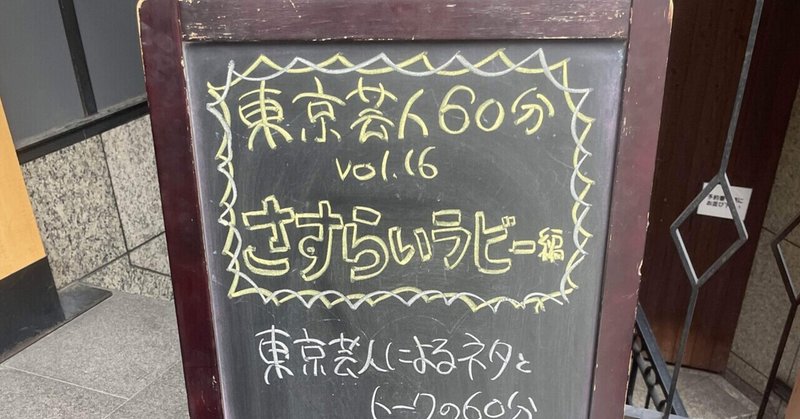 東京芸人60分
vol.16
さすらいラビー編
東京芸人によるネタと
トークの60分